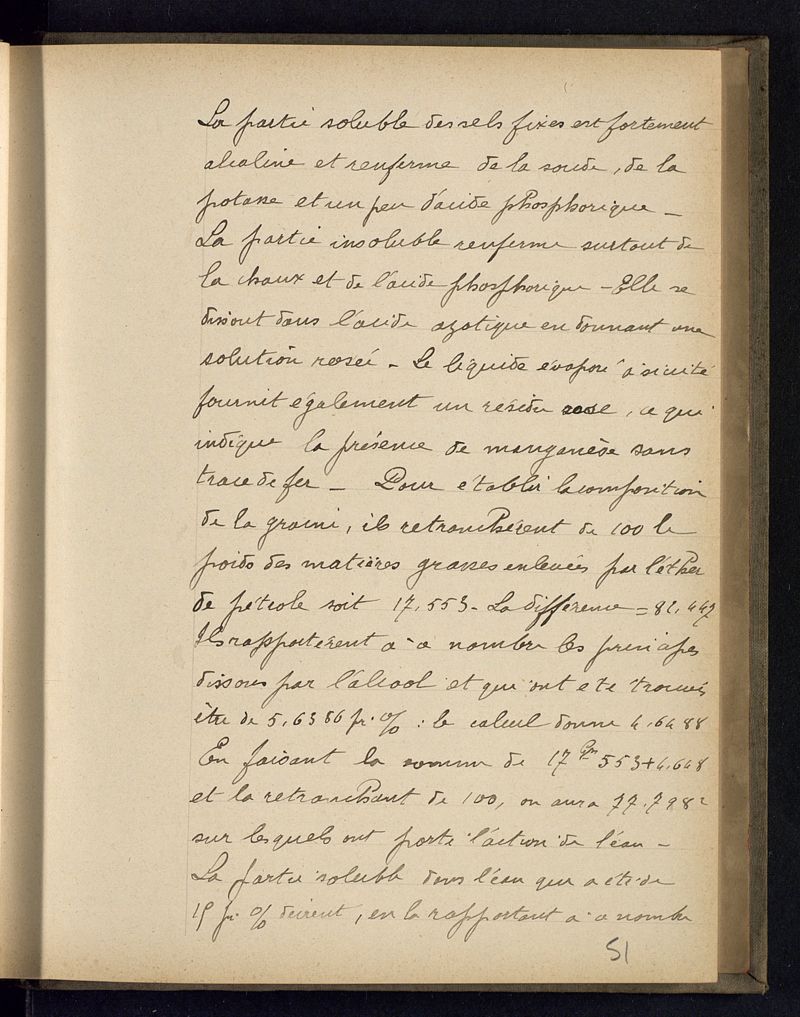 La partie soluble des sels fixes est fortement
alcaline et renferme de la soude, de la
potasse et un peu d'acide phosphorique _
La partie insoluble renferme surtout de
la chaux et de l'acide phosphorique - Elle se
dissout dans l'acide azotique en donnant une
solution rosée - Le liquide évaporé à siccité
fournit également un résidu rose, ce qui
indique la présence de manganèse sans
trace de fer _ Pour établir la composition
de la graine, ils retranchèrent de 100 le
poids des matières grasses enlevées par l'éther
de pétrole soit 17,553 - La différence = 82,447
Ils rapportèrent à ce nombre les principes
dissous par l'alcool et qui ont été trouvés
être de 5,6386 pr. % : le calcul donne 4,6488
En faisant la somme de 17 gm 553 + 4,648
et la retranchant de 100, on aura 77,798
sur lesquels ont porté l'action de l'eau -
La partie soluble dans l'eau qui a été de
15 pr. % , en la rapportant à ce nombre
51